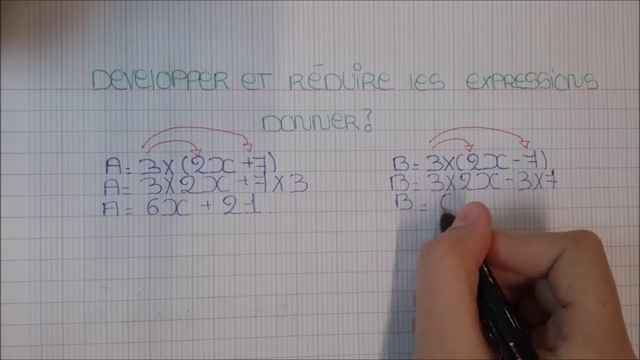 DEVELOPPER ET RÉDUIRE LES EXPRESSIONS
DONNER?
A = 3x(2x+7)
A = 3x2x+7x3
A = 6x + 21
B = 3x(2x-7)
B = 3x2x-3x7
B =